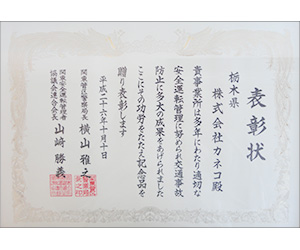 表彰状
栃木県
株式会社カネコ殿
貴事業所は多年にわたり適切な
安全運転管理に努められ交通事故
防止に多大の成果をあげられました
ここにその功労をたたえ記念品を
贈り表彰します
平成二十六年十月十日
関東管区警察局長
横山雅之
関東安全運転管理者
協議会連合会長
山﨑勝義